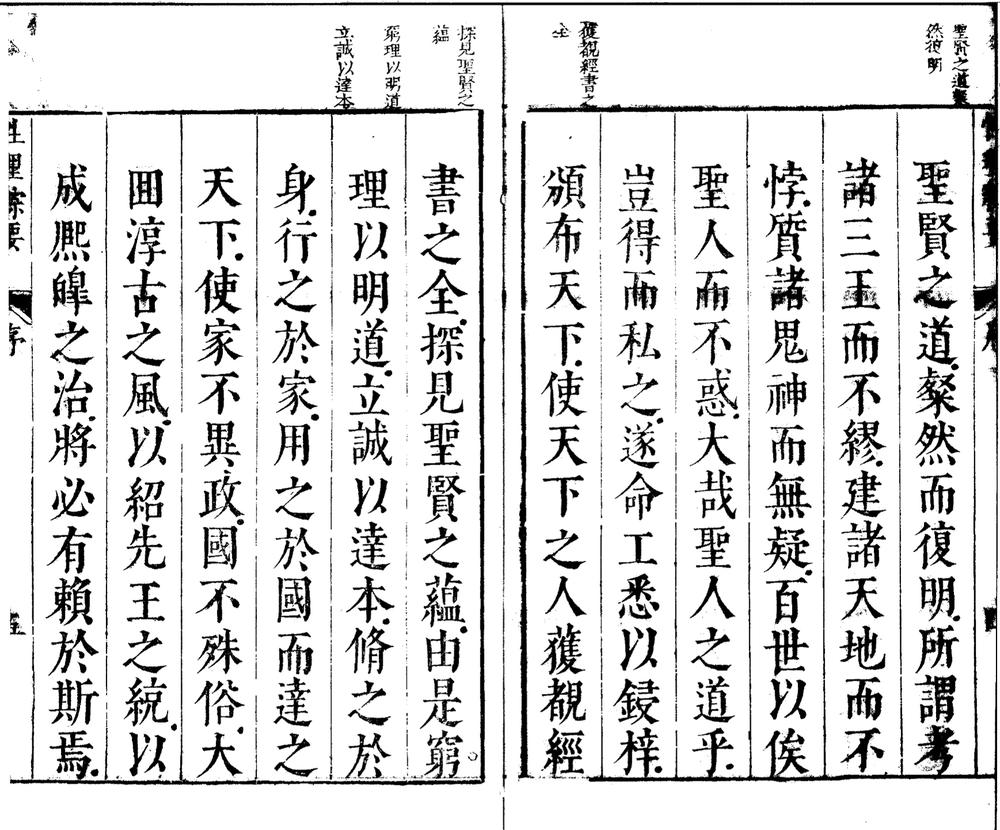 聖賢之道粲
然復明
獲覩經書之
全
聖賢之道粲然而復明所謂考
諸三王而不繆建諸天地而不
悖質諸鬼神而無疑百世以俟
聖人而不惑大哉聖人之道乎
豈得而私之遂命工悉以鋟梓
頒布天下使天下之人獲覩經
探見聖賢之
蘊
窮理以明道
立誠以達本
書之全探見聖賢之蘊由是窮
理以明道立誠以達本脩之於
身行之於家用之於國而達之
天下使家不異政國不殊俗大
囬淳古之風以紹先王之統以
成熈皥之治將必有賴於斯焉
性理綜要
序